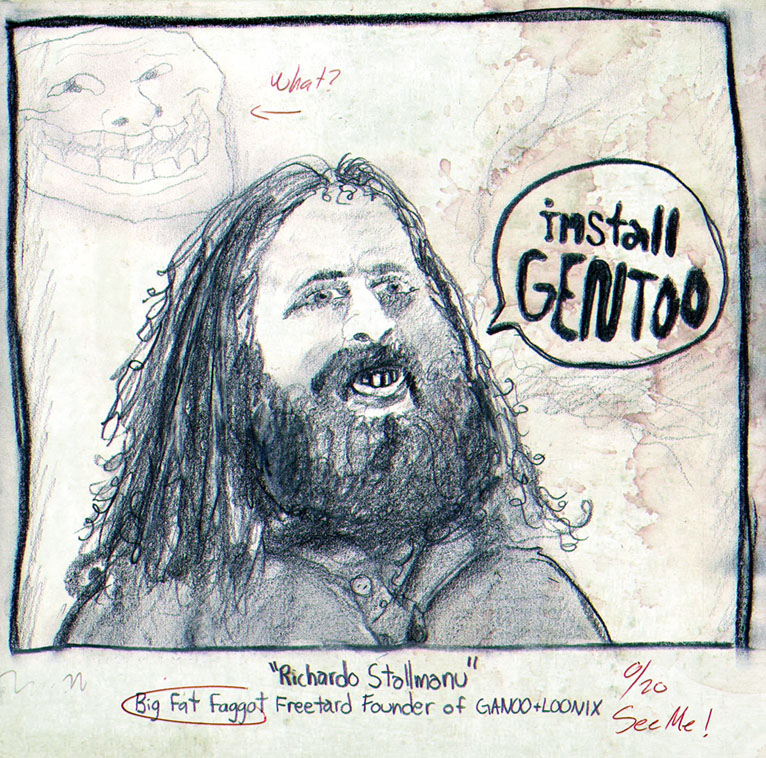 What?
install
GENTOO
"Richardo Stallmanu"
Big Fat Faggot Freetard Founder of GANOO+LOONIX
0/20
See Me!